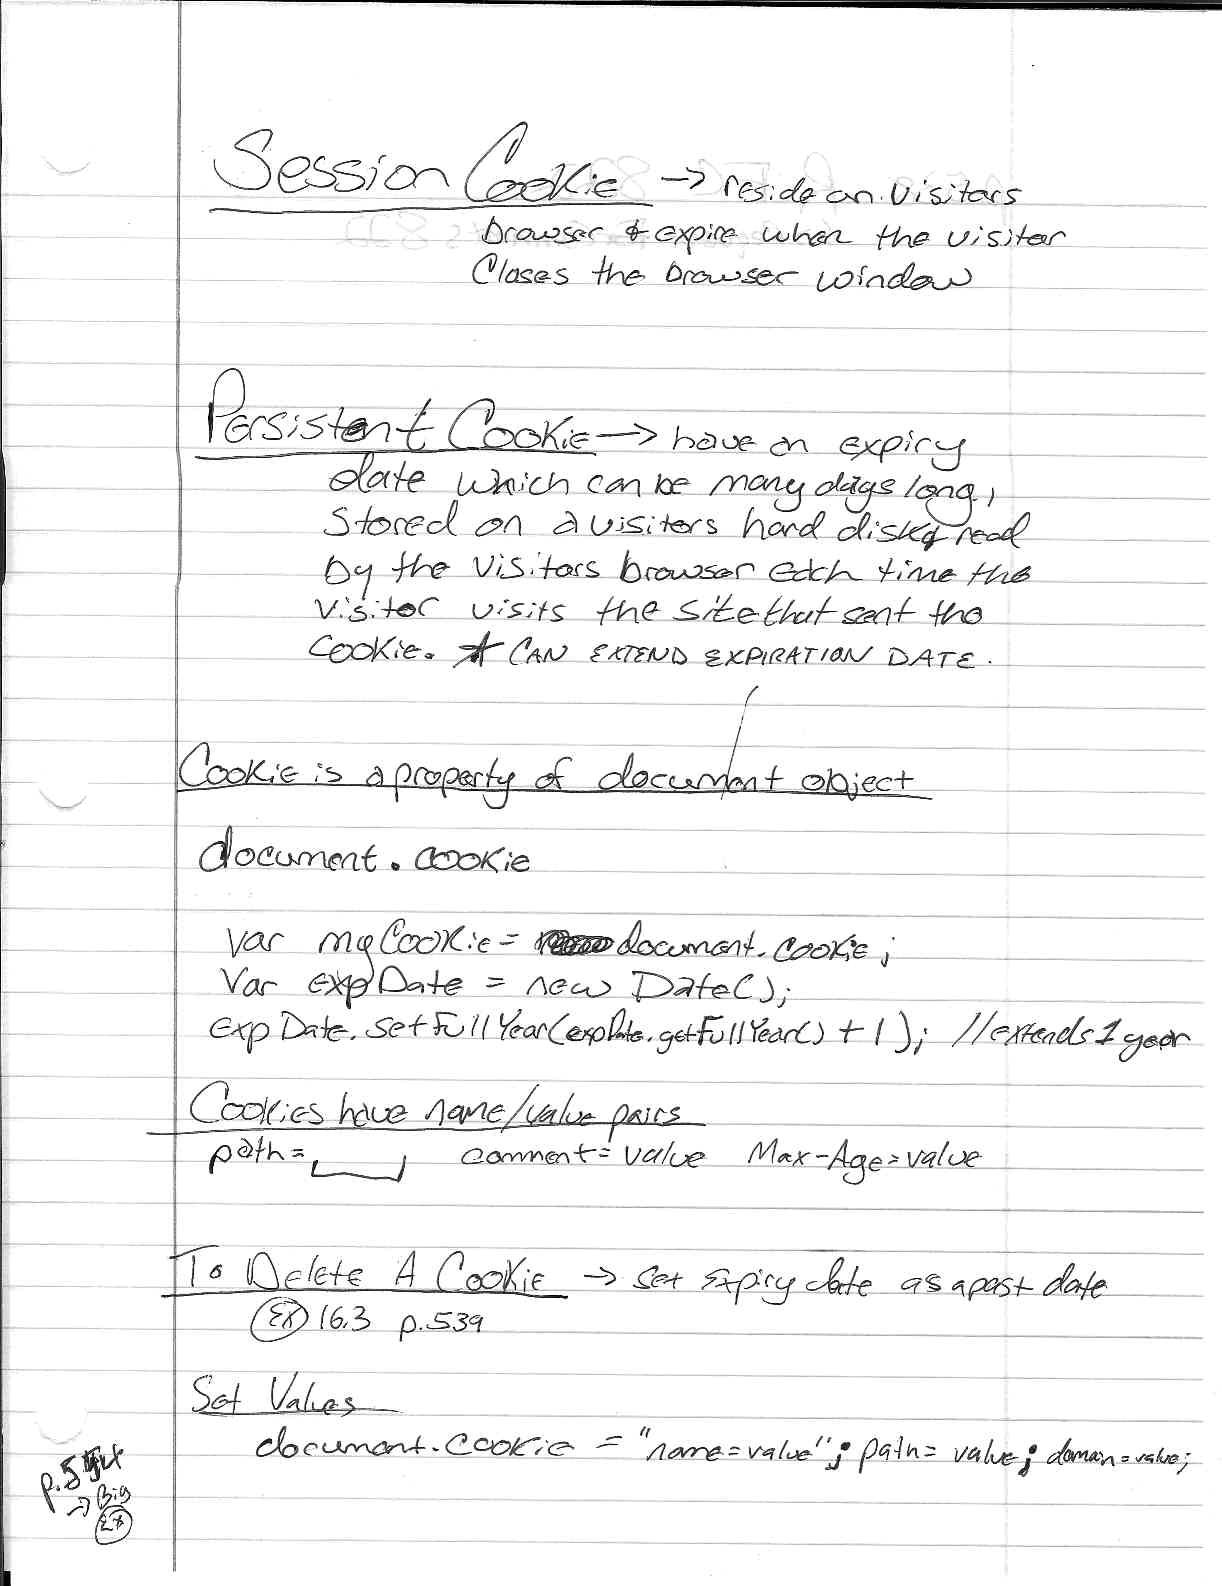 Session Cookie → reside on visitors
browser & expire when the visitor
closes the browser window
Persistent Cookie → have an expiry
date which can be many days long,
stored on a visitors hard disk & read
by the visitors browser each time the
visitor visits the site that sent the
cookie. * CAN EXTEND EXPIRATION DATE.
Cookie is a property of document object
document.cookie
var myCookie = document.cookie;
Var expDate = new Date();
expDate.setFullYear(expDate.getFullYear() + 1); //extends 1 year
Cookies have name/value pairs
path= comment=value Max-Age=value
To Delete A Cookie → set expiry date as a past date
Ex 16.3 p.539
Set Values
document.cookie = "name=value"; path=value; domain=value;
→ Big
Ex